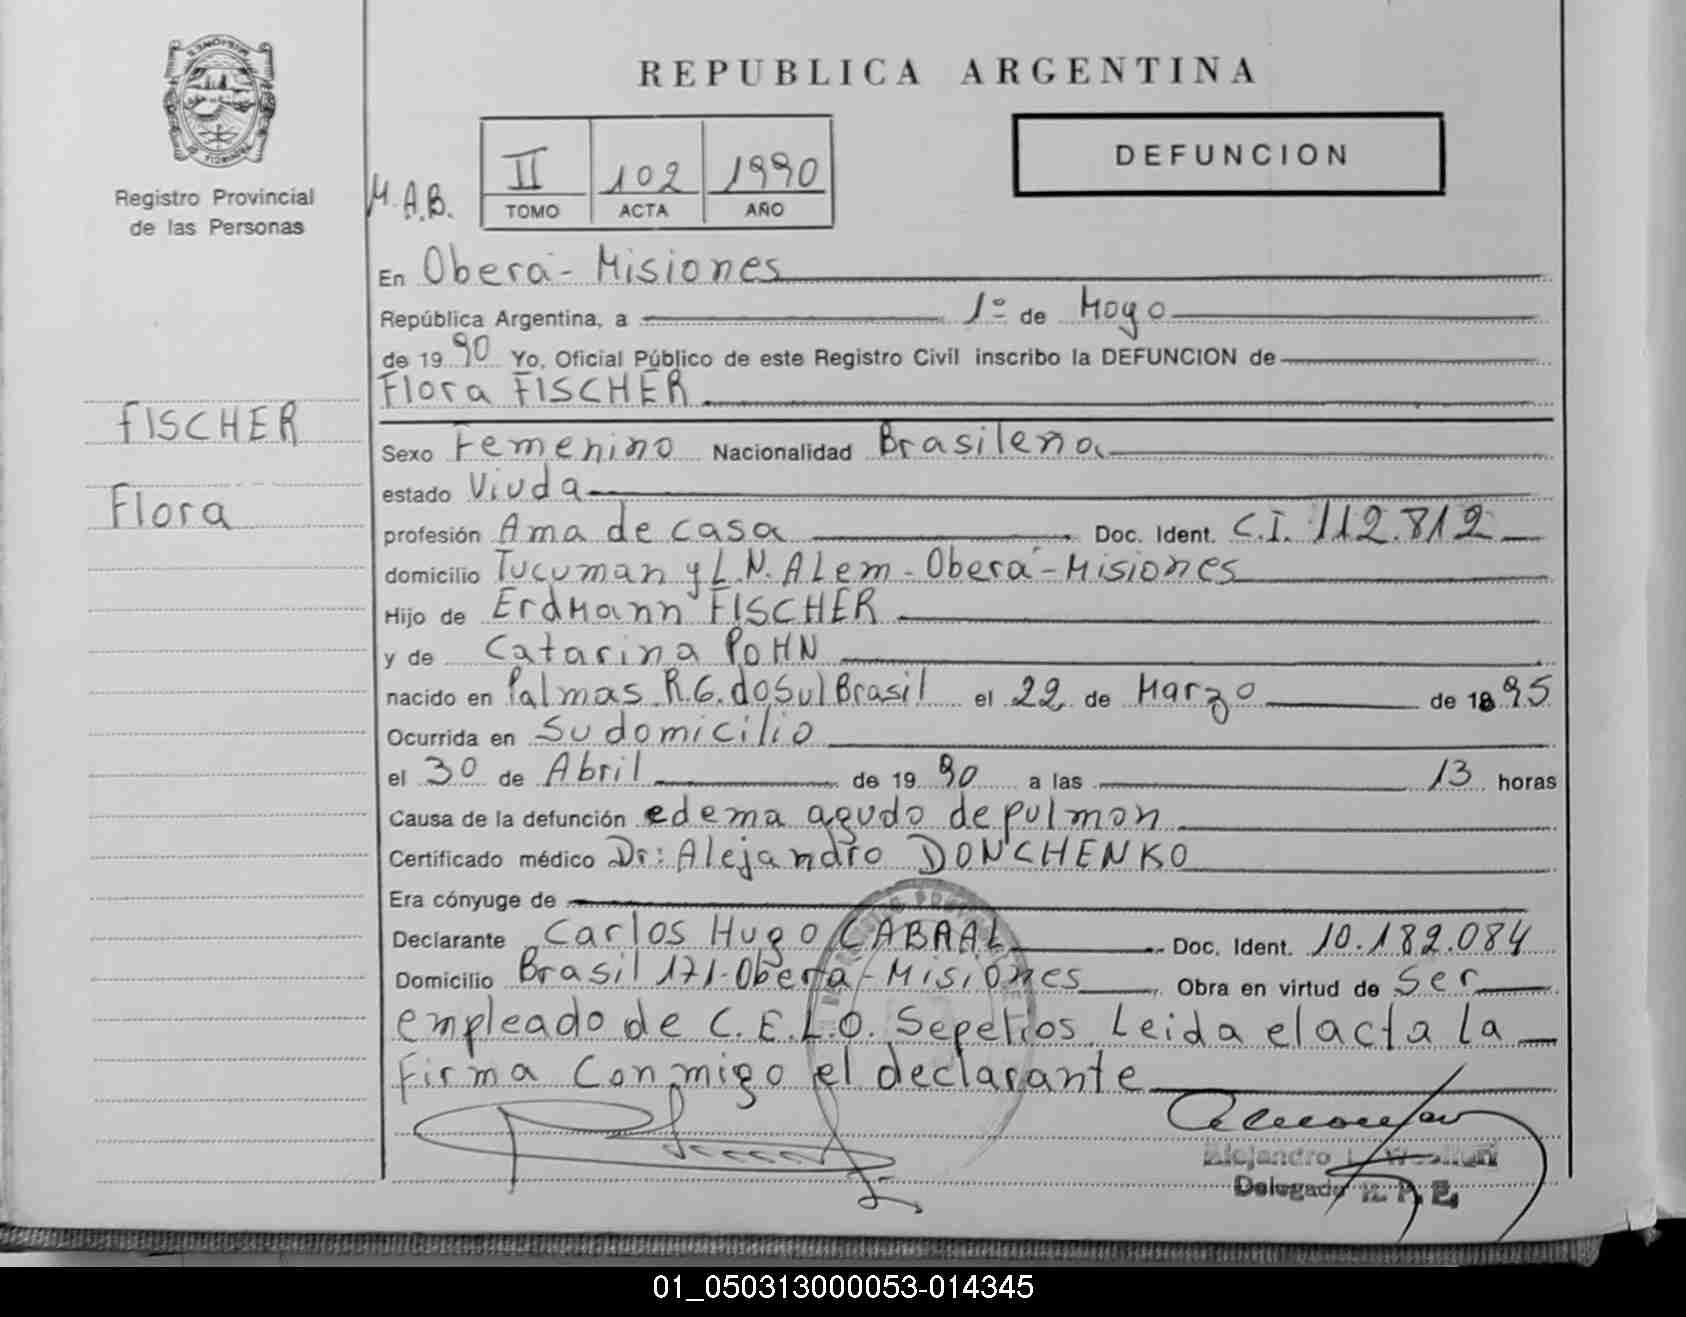 REPUBLICA ARGENTINA
DEFUNCION
Registro Provincial
de las Personas
M.A.B.
II 102 1990
TOMO ACTA AÑO
En Oberá - Misiones
República Argentina, a 1º de Mayo
de 1990 Yo, Oficial Público de este Registro Civil inscribo la DEFUNCION de
Flora FISCHER
FISCHER
Flora
Sexo Femenino Nacionalidad Brasileña
estado Viuda
profesión Ama de casa Doc. Ident. C.I. 112.812
domicilio Tucuman y L.N. ALem - Oberá - Misiones
Hijo de Erdmann FISCHER
y de Catarina POHN
nacido en Palmas R.G. do Sul Brasil el 22 de Marzo de 1895
Ocurrida en Su domicilio
el 30 de Abril de 1990 a las 13 horas
Causa de la defunción edema agudo de pulmon
Certificado médico Dr: Alejandro DONCHENKO
Era cónyuge de
Declarante Carlos Hugo CABRAL Doc. Ident. 10.182.084
Domicilio Brasil 171 - Oberá - Misiones Obra en virtud de Ser
empleado de C.E.L.O. Sepelios. Leida el acta La
Firma Conmigo el declarante
Alejandro
Delegado R. P.
01_050313000053-014345